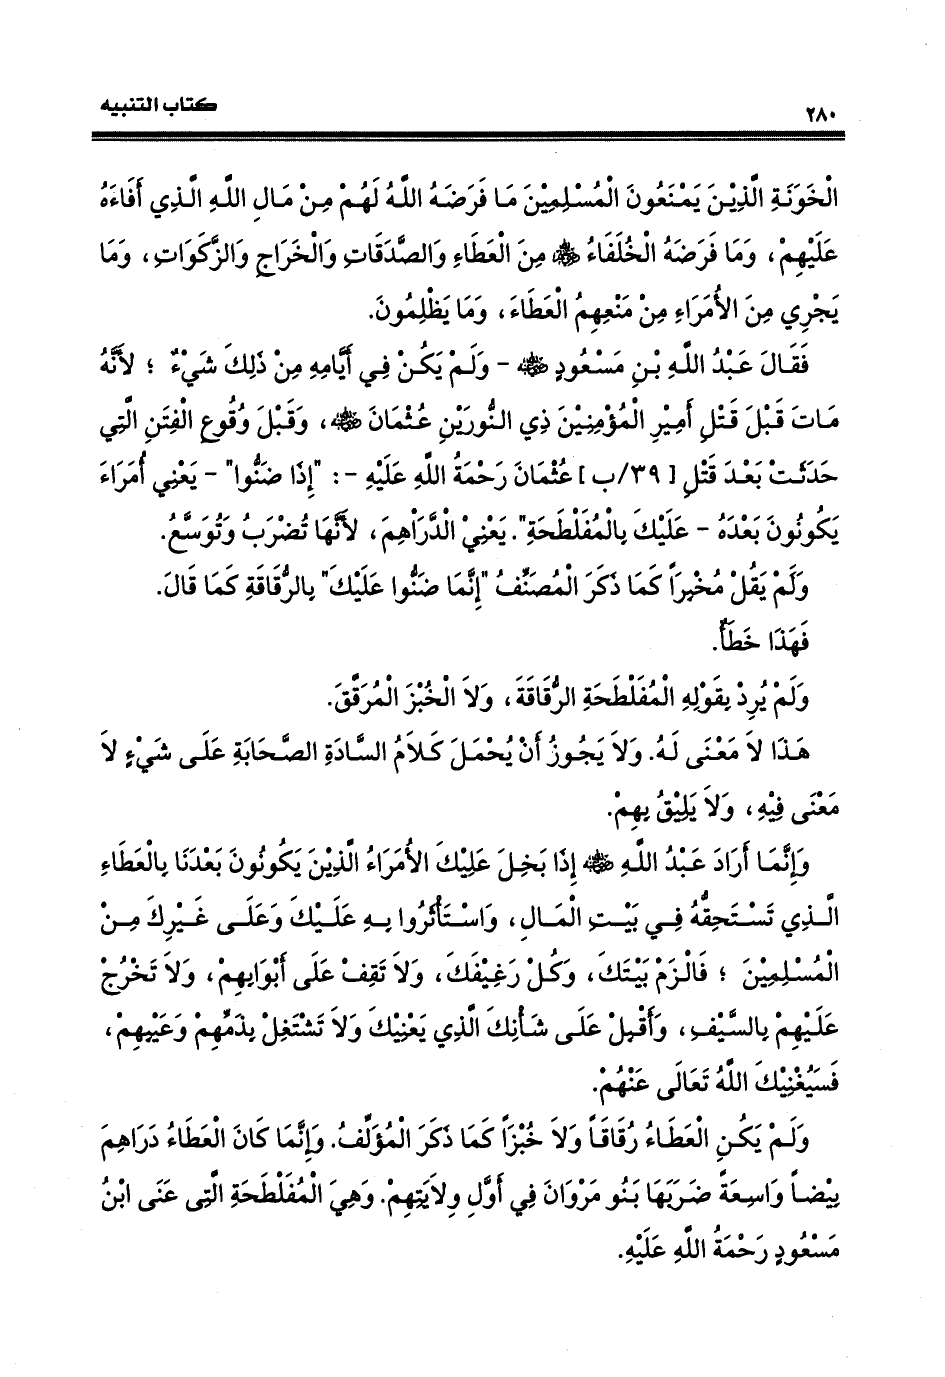 كتاب التنبيه
٢٨٠
الْخَوَنَةِ الَّذِيْنَ يَمْنَعُونَ الْمُسْلِمِيْنَ مَا فَرَضَهُ اللَّهُ لَهُمْ مِنْ مَالِ اللَّهِ الَّذِي أَفَاءَهُ
عَلَيْهِمْ، وَمَا فَرَضَهُ الْخُلَفَاءُ ﷺ مِنَ الْعَطَاءِ وَالصَّدَقَاتِ وَالْخَرَاجِ وَالزَّكَوَاتِ، وَمَا
يَجْرِي مِنَ الأُمَرَاءِ مِنْ مَنْعِهِمُ الْعَطَاءَ، وَمَا يَظْلِمُونَ.
فَقَالَ عَبْدُ اللَّهِ بْنِ مَسْعُودٍ ﷺ - وَلَمْ يَكُنْ فِي أَيَّامِهِ مِنْ ذَلِكَ شَيْءٌ ؛ لأَنَّهُ
مَاتَ قَبْلَ قَتْلِ أَمِيْرِ الْمُؤْمِنِيْنَ ذِي النُّورَيْنِ عُثْمَانَ ﷺ، وَقَبْلَ وُقُوعِ الْفِتَنِ الَّتِي
حَدَثَتْ بَعْدَ قَتْلِ [٣٩/ب] عُثْمَانَ رَحْمَةُ اللَّهِ عَلَيْهِ -: "إِذَا ضَنُّوا" - يَعْنِي أُمَرَاءَ
يَكُونُونَ بَعْدَهُ - عَلَيْكَ بِالْمُفَلْطَحَةِ". يَعْنِيْ الدَّرَاهِمَ، لأَنَّهَا تُضْرَبُ وَتُوَسَّعُ.
وَلَمْ يَقُلْ مُخْبِراً كَمَا ذَكَرَ الْمُصَنِّفُ "إِنَّمَا ضَنُّوا عَلَيْكَ" بِالرُّقَاقَةِ كَمَا قَالَ.
فَهَذَا خَطَأٌ.
وَلَمْ يُرِدْ بِقَوْلِهِ الْمُفَلْطَحَةِ الرُّقَاقَةَ، وَلاَ الْخُبْزَ الْمُرَقَّقَ.
هَذَا لاَ مَعْنَى لَهُ. وَلاَ يَجُوزُ أَنْ يُحْمَلَ كَلاَمُ السَّادَةِ الصَّحَابَةِ عَلَى شَيْءٍ لاَ
مَعْنَى فِيْهِ، وَلاَ يَلِيْقُ بِهِمْ.
وَإِنَّمَا أَرَادَ عَبْدُ اللَّهِ ﷺ إِذَا بَخِلَ عَلَيْكَ الأُمَرَاءُ الَّذِيْنَ يَكُونُونَ بَعْدَنَا بِالْعَطَاءِ
الَّذِي تَسْتَحِقُّهُ فِي بَيْتِ الْمَالِ، وَاسْتَأْثَرُوا بِهِ عَلَيْكَ وَعَلَى غَيْرِكَ مِنْ
الْمُسْلِمِيْنَ ؛ فَالْزَمْ بَيْتَكَ، وَكُلْ رَغِيْفَكَ، وَلاَ تَقِفْ عَلَى أَبْوَابِهِمْ، وَلاَ تَخْرُجْ
عَلَيْهِمْ بِالسَّيْفِ، وَأَقْبِلْ عَلَى شَأْنِكَ الَّذِي يَعْنِيْكَ وَلاَ تَشْتَغِلْ بِذَمِّهِمْ وَعَيْبِهِمْ،
فَسَيُغْنِيْكَ اللَّهُ تَعَالَى عَنْهُمْ.
وَلَمْ يَكُنِ الْعَطَاءُ رُقَاقاً وَلاَ خُبْزاً كَمَا ذَكَرَ الْمُؤَلِّفُ. وَإِنَّمَا كَانَ الْعَطَاءُ دَرَاهِمَ
بِيْضاً وَاسِعَةً ضَرَبَهَا بَنُو مَرْوَانَ فِي أَوَّلِ وِلاَيَتِهِمْ. وَهِيَ الْمُفَلْطَحَةِ الَّتِي عَنَى ابْنُ
مَسْعُودٍ رَحْمَةُ اللَّهِ عَلَيْهِ.